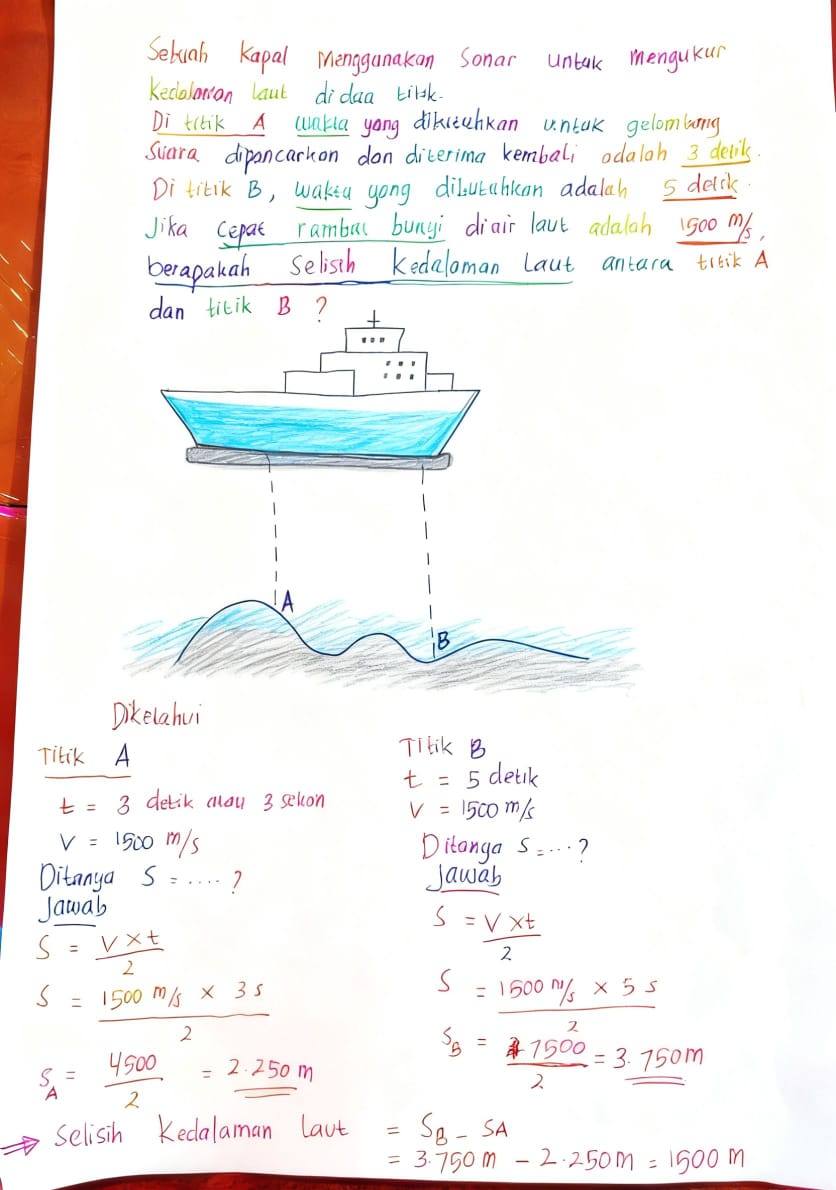 Sebuah Kapal Menggunakan Sonar untuk mengukur
Kedalaman laut di dua titik.
Di titik A waktu yang dibutuhkan untuk gelombang
Suara dipancarkan dan diterima kembali adalah 3 detik.
Di titik B, waktu yang dibutuhkan adalah 5 detik.
Jika Cepat rambat bunyi di air laut adalah 1500 m/s,
berapakah Selisih Kedalaman Laut antara titik A
dan titik B ?
A
B
Diketahui
Titik A
t = 3 detik atau 3 sekon
V = 1500 m/s
Ditanya S = .... ?
Jawab
S = V x t / 2
S = 1500 m/s x 3 s / 2
S_A = 4500 / 2 = 2.250 m
Titik B
t = 5 detik
V = 1500 m/s
Ditanya S = .... ?
Jawab
S = V x t / 2
S = 1500 m/s x 5 s / 2
S_B = 7500 / 2 = 3.750 m
⇒ Selisih Kedalaman Laut = S_B - SA
= 3.750 m - 2.250 m = 1500 m